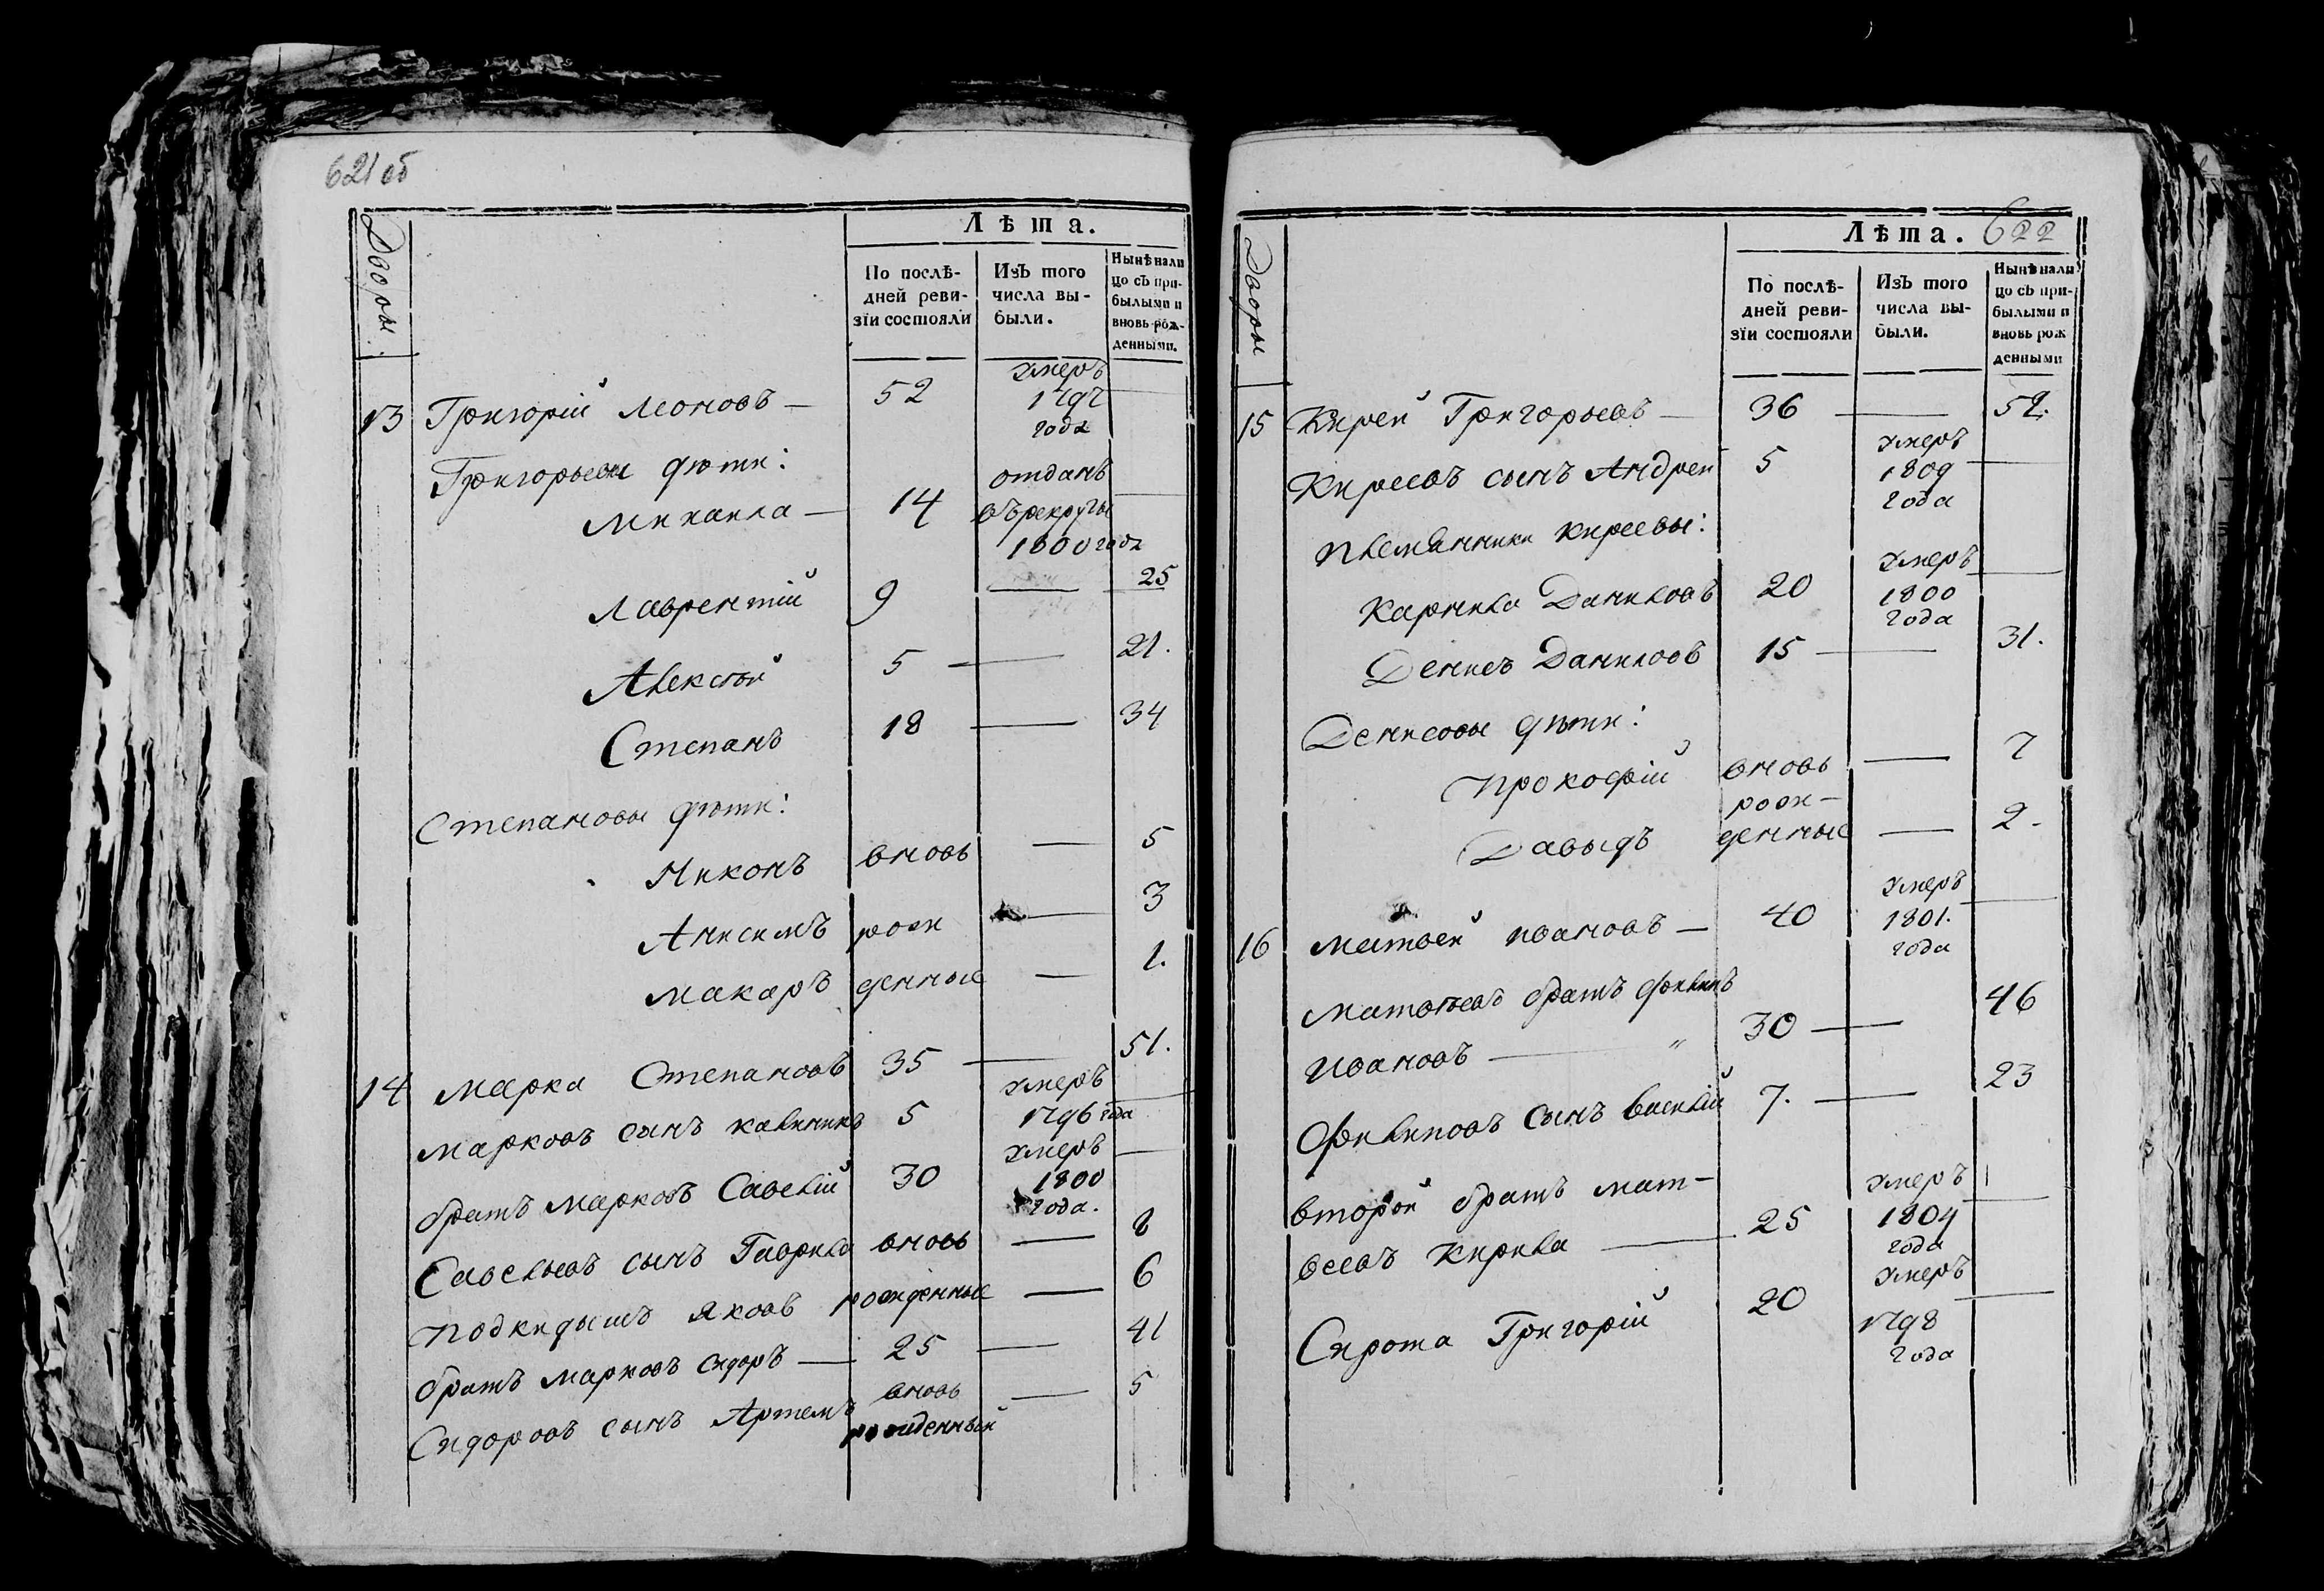 621 об
Дворы.
Лѣта.
По послѣ-
дней реви-
зіи состояли
Изъ того
числа вы-
были.
Нынѣ нали
цо съ при-
былыми и
вновь рож-
денными.
13 Григорій Леоновъ — 52 умеръ
1797
года
Григорьевы дѣти:
Михаила — 14 отданъ
въ рекруты
1800 года
Лаврентій 9 — 25
Алексѣй 5 — 21.
Степанъ 18 — 34
Степановы дѣти:
Никонъ вновь — 5
Анисимъ рож — 3
Макаръ денные — 1.
14 Марка Степановъ 35 — 51.
Марковъ сынъ Калиникъ 5 умеръ
1796 года
братъ Марковъ Савелій 30 умеръ
1800
года.
Савельевъ сынъ Гаврила вновь — 8
Подкидышъ Яковъ рожденные — 6
братъ Марковъ Сидоръ — 25 — 41
Сидоровъ сынъ Артемъ вновь — 5
рожденный
622
Дворы
Лѣта.
По послѣ-
дней реви-
зіи состояли
Изъ того
числа вы-
были.
Нынѣ нали
цо съ при-
былыми и
вновь рож
денными
15 Кирей Григорьевъ — 36 — 52.
Киреевъ сынъ Андрей 5 умеръ
1809
года
Племянники Киреевы:
Карнила Даниловъ 20 умеръ
1800
года
Денисъ Даниловъ 15 — 31.
Денисовы дѣти:
Прокофій вновь — 7
рож-
Давыдъ денные — 2.
16 Матвей Ивановъ — 40 умеръ
1801.
года
Матвѣевъ братъ Филипъ
Ивановъ — " 30 — 46
Филиповъ сынъ Василій 7. — 23
второй братъ Мат-
веевъ Кирила — 25 умеръ
1804
года
Сирота Григорій 20 умеръ
1798
года